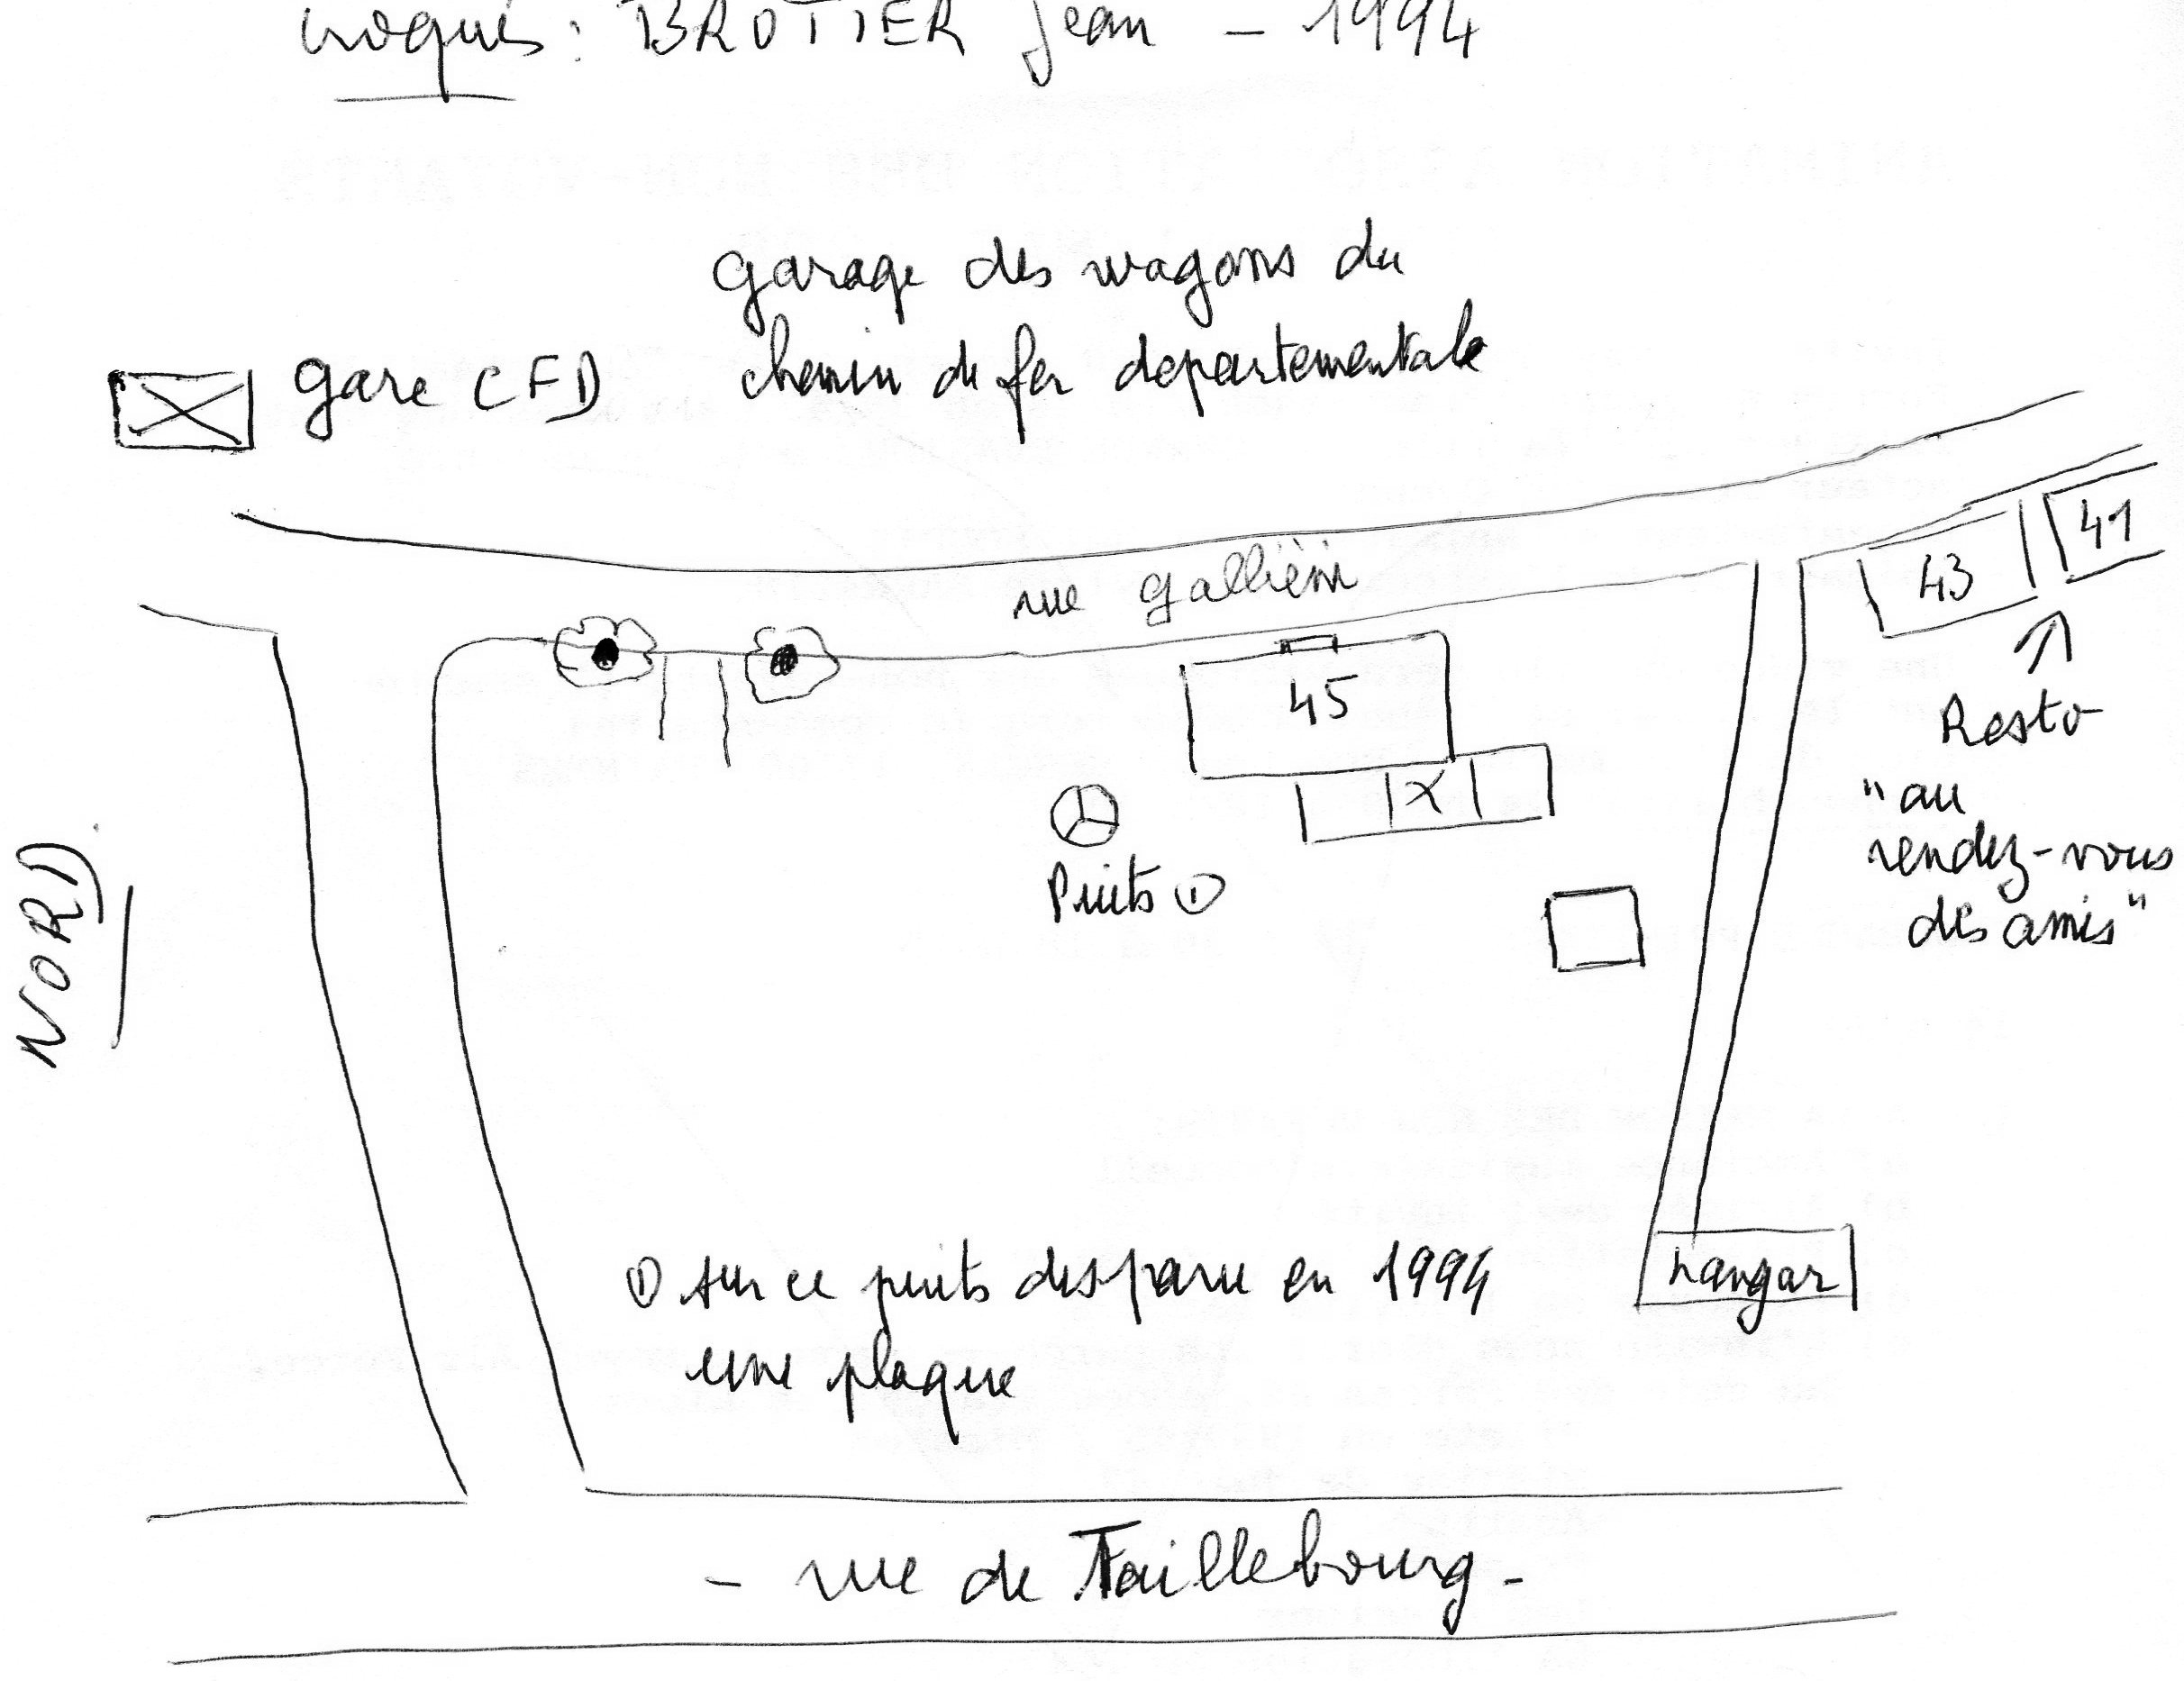 croquis : BROTIER Jean - 1994
garage des wagons du
chemin de fer departementale
gare CFD
rue Gallièni
41
43
45
X
Resto
"au
rendez-vous
des amis"
Puits ①
NORD
hangar
① sur ce puits disparu en 1994
une plaque
- rue de Taillebourg -